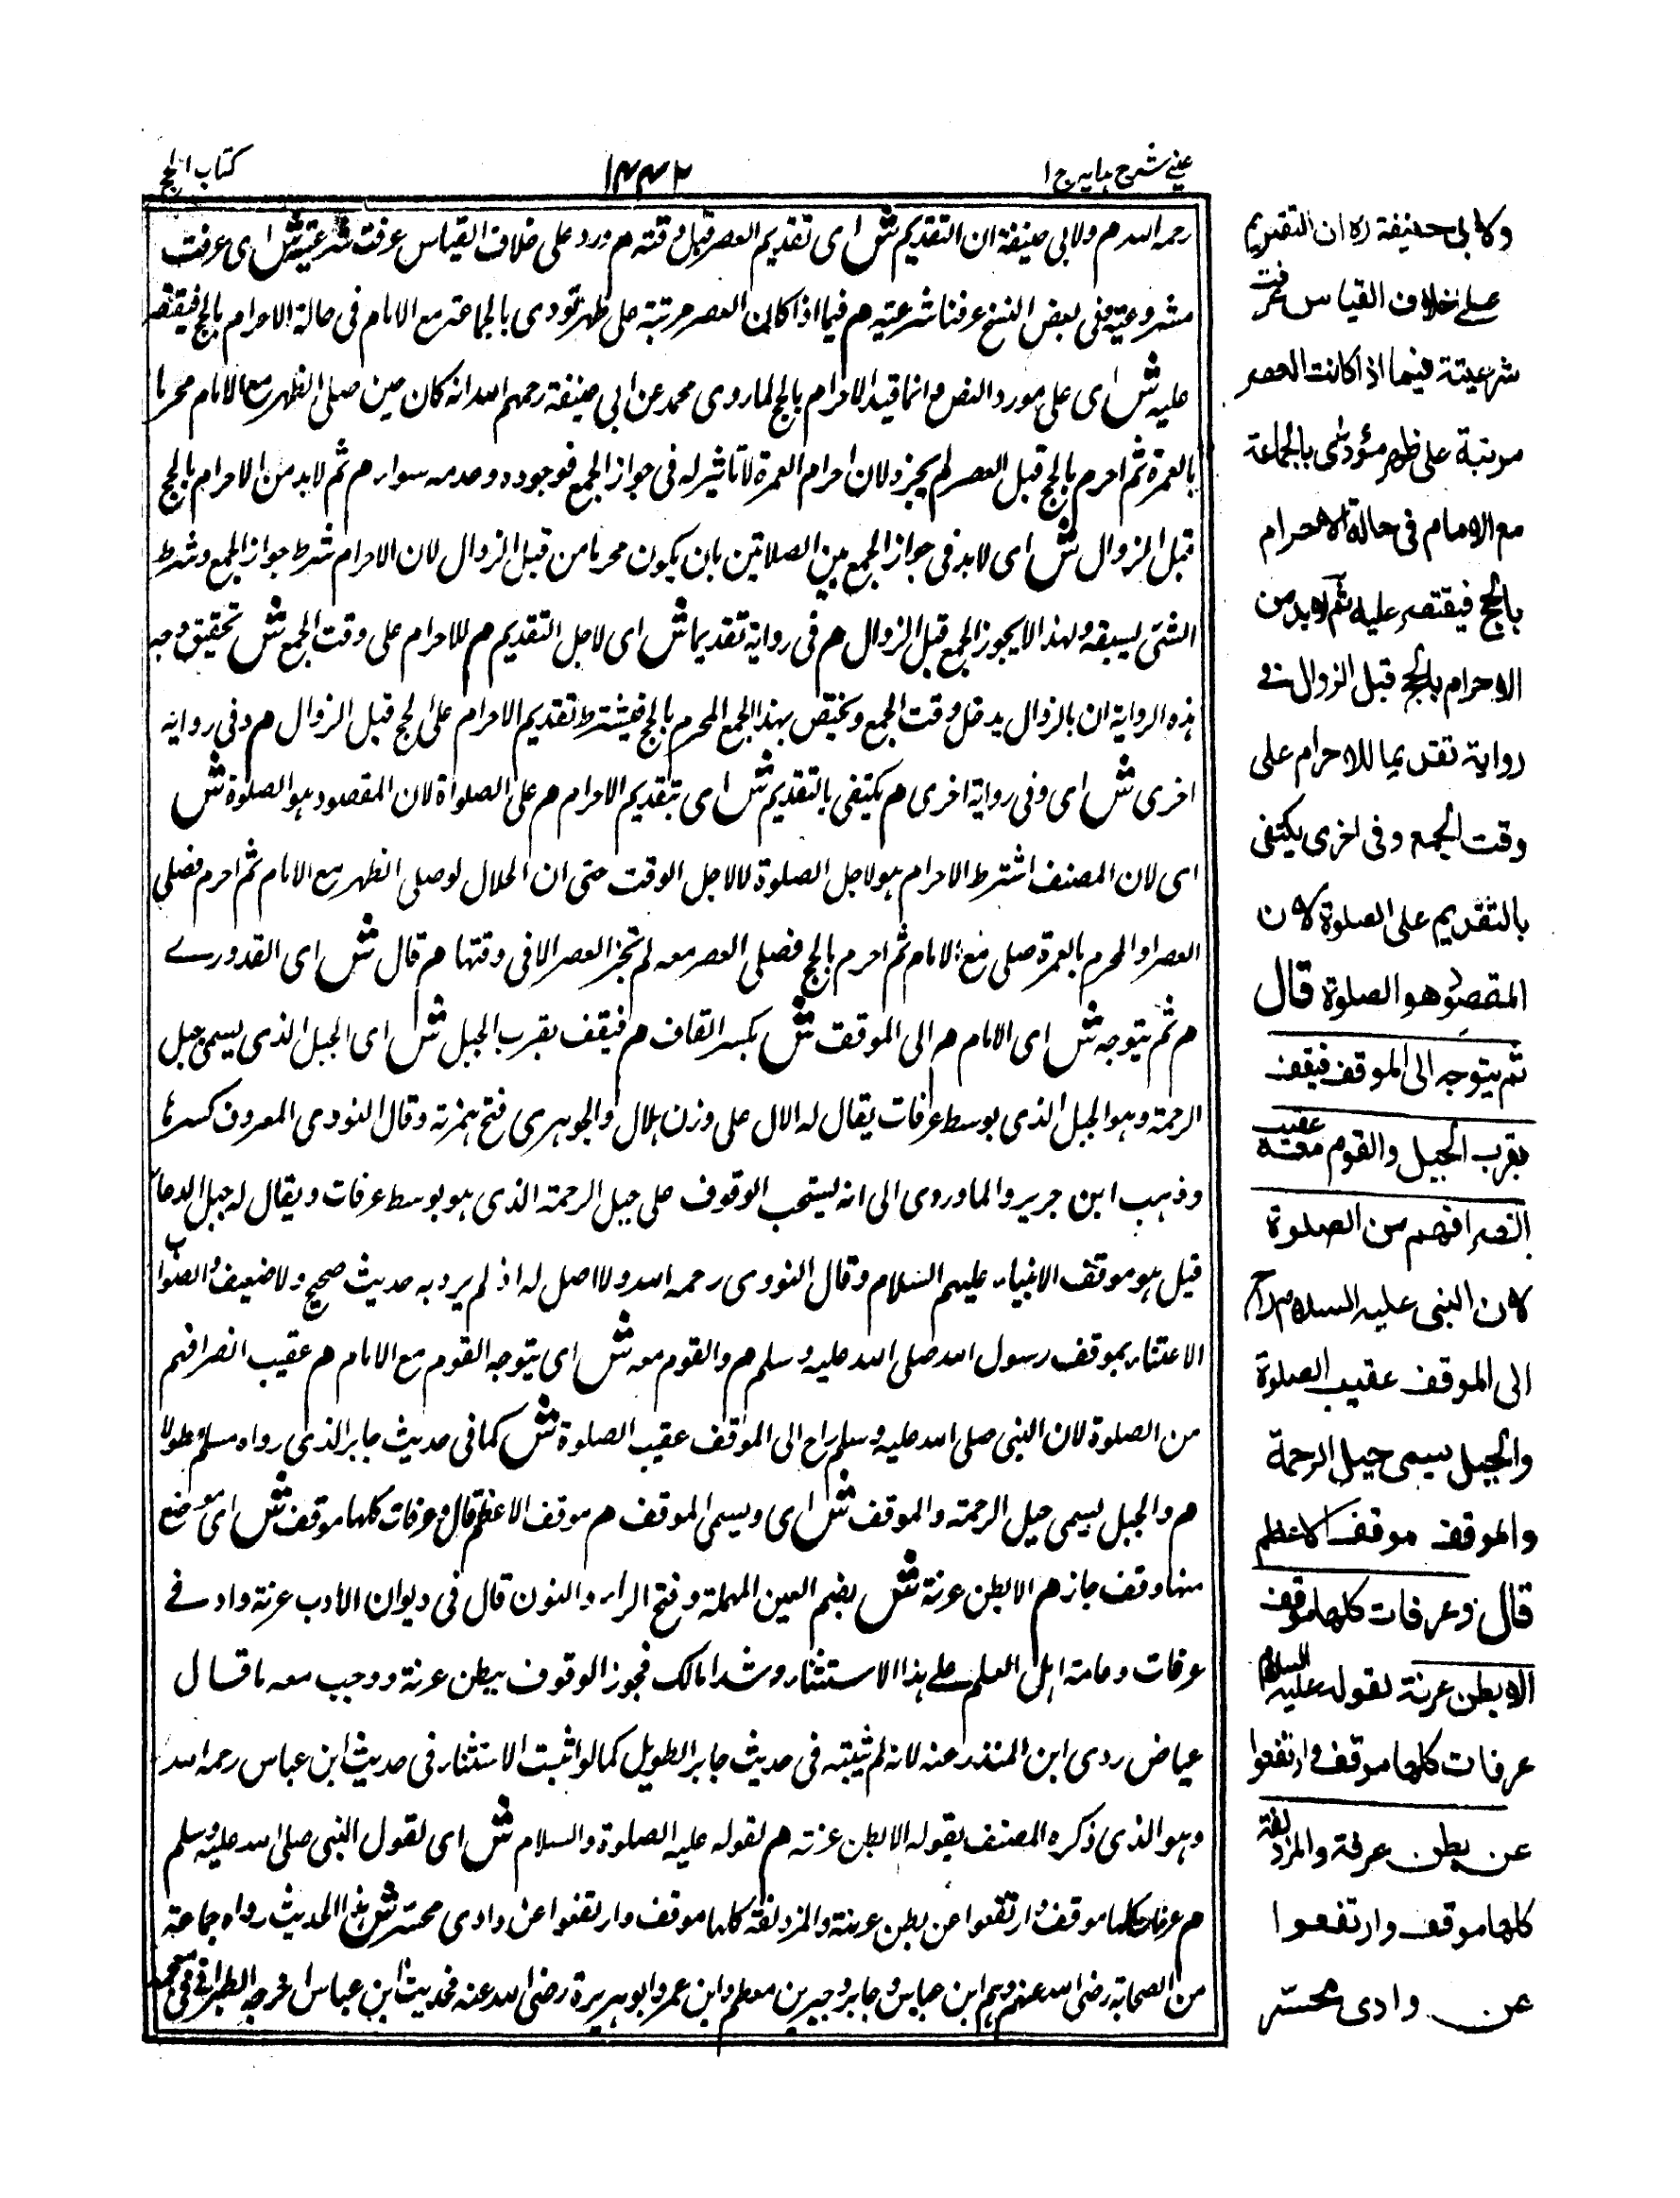 عینے شرح ہدایہ ج ۱
۱۴۴۲
کتاب الحج
رحمہ اللہ م ولابی حنیفة ان التقدیم ش ای تقدیم العصر قبل وقته م ورد علی خلاف القیاس عرفت شرعیته ش ای عرفت
مشروعیته وفی بعض النسخ عرفنا شرعیته م فیما اذا کان العصر مرتبة علی ظهر تودی بالجماعة مع الامام فی حالة الاحرام بالحج فیقتصر
علیه ش ای علی مورد النص وانما قید الاحرام بالحج لما روی محمد عن ابی حنیفة رحمهم الله انه کان حین صلی الظهر مع الامام محرما
بالعمرة ثم احرم بالحج قبل العصر لم یجز ولان احرام العمرة لا تاثیر له فی جواز الجمع فوجوده وعدمه سواء م ثم لا بد من الاحرام بالحج
قبل الزوال ش ای لا بد فی جواز الجمع بین الصلاتین بان یکون محرما من قبل الزوال لان الاحرام شرط جواز الجمع وشرط
الشئی یسبقه ولهذا لا یجوز الجمع قبل الزوال م فی روایة تقدیما ش ای لاجل التقدیم م للاحرام علی وقت الجمع ش تحقیق وجه
هذه الروایة ان بالزوال یدخل وقت الجمع ویختص بهذا الجمع المحرم بالحج فیشترط تقدیم الاحرام علی الحج قبل الزوال م وفی روایة
اخری ش ای وفی روایة اخری م یکتفی بالتقدیم ش ای بتقدیم الاحرام م علی الصلواة لان المقصود هو الصلوة ش
ای لان المصنف اشترط الاحرام هو لاجل الصلوة لا لاجل الوقت حتی ان الحلال لو صلی الظهر مع الامام ثم احرم فصلی
العصر او المحرم بالعمرة صلی مع الامام ثم احرم بالحج فصلی العصر معه لم تجز العصر الا فی وقتها م قال ش ای القدورے
م ثم یتوجه ش ای الامام م الی الموقف ش بکسر القاف م فیقف بقرب الجبل ش ای الجبل الذی یسمی جبل
الرحمة وهو الجبل الذی بوسط عرفات یقال له الال علی وزن هلال والجوهری فتح همزته وقال النووی المعروف کسرها
وذهب ابن جریر والماوردی الی انه یستحب الوقوف علی جبل الرحمة الذی هو بوسط عرفات ویقال له جبل الدعاء
قیل هو موقف الانبیاء علیهم السلام وقال النووی رحمه الله ولا اصل له اذ لم یرد به حدیث صحیح ولا ضعیف والصواب
الاعتناء بموقف رسول الله صلی الله علیه وسلم م والقوم معه ش ای یتوجه القوم مع الامام م عقیب انصرافهم
من الصلوة لان النبی صلی الله علیه وسلم راح الی الموقف عقیب الصلوة ش کما فی حدیث جابر الذی رواه مسلم مطولا
م والجبل یسمی جبل الرحمة والموقف ش ای ویسمی الموقف م موقف الاعظم قال وعرفات کلها موقف ش ای موضع
منها وقف جاز م الا بطن عرنة ش بضم العین المهملة وفتح الراء والنون قال فی دیوان الادب عرنة واد فے
عرفات وعامة اهل العلم علے هذا الاستثناء وشذ مالک فجوز الوقوف ببطن عرنة ووجب معه ما قال
عیاض روی ابن المنذر عنه لانه لم یثبته فی حدیث جابر الطویل کما لو اثبت الاستثناء فی حدیث ابن عباس رحمه الله
وهو الذی ذکره المصنف بقوله الا بطن عرنة م لقوله علیه الصلوة والسلام ش ای لقول النبی صلی الله علیه وسلم
م عرفات کلها موقف وارتفعوا عن بطن عرنة والمزدلفة کلها موقف وارتفعوا عن وادی محسر ش هذا الحدیث رواه جماعة
من الصحابة رضی الله عنهم وهم ابن عباس وجابر وجبیر بن مطعم وابن عمر وابو هریرة رضی الله عنه فحدیث ابن عباس اخرجه الطبرانی فی معجمه
ولابی حنیفة رہ ان التقدیم
علے خلاف القیاس عرفت
شرعیتة فیما اذا کانت العصر
مرتبة علی ظهر مؤدی بالجماعة
مع الامام فی حالة الاحرام
بالحج فیقتصر علیه ثم لابد من
الاحرام بالحج قبل الزوال فے
روایة تقدیما للاحرام علی
وقت الجمع وفی اخری یکتفی
بالتقدیم علی الصلوة لان
المقصود هو الصلوة قال
ثم یتوجه الی الموقف فیقف
بقرب الجبل والقوم معه عقیب
انصرافهم من الصلوة
لان النبی علیه السلام راح
الی الموقف عقیب الصلوة
والجبل یسمی جبل الرحمة
والموقف موقف الاعظم
قال وعرفات کلها موقف
الا بطن عرنة لقوله علیه السلام
عرفات کلها موقف وارتفعوا
عن بطن عرفة والمزدلفة
کلها موقف وارتفعوا
عن وادی محسّر